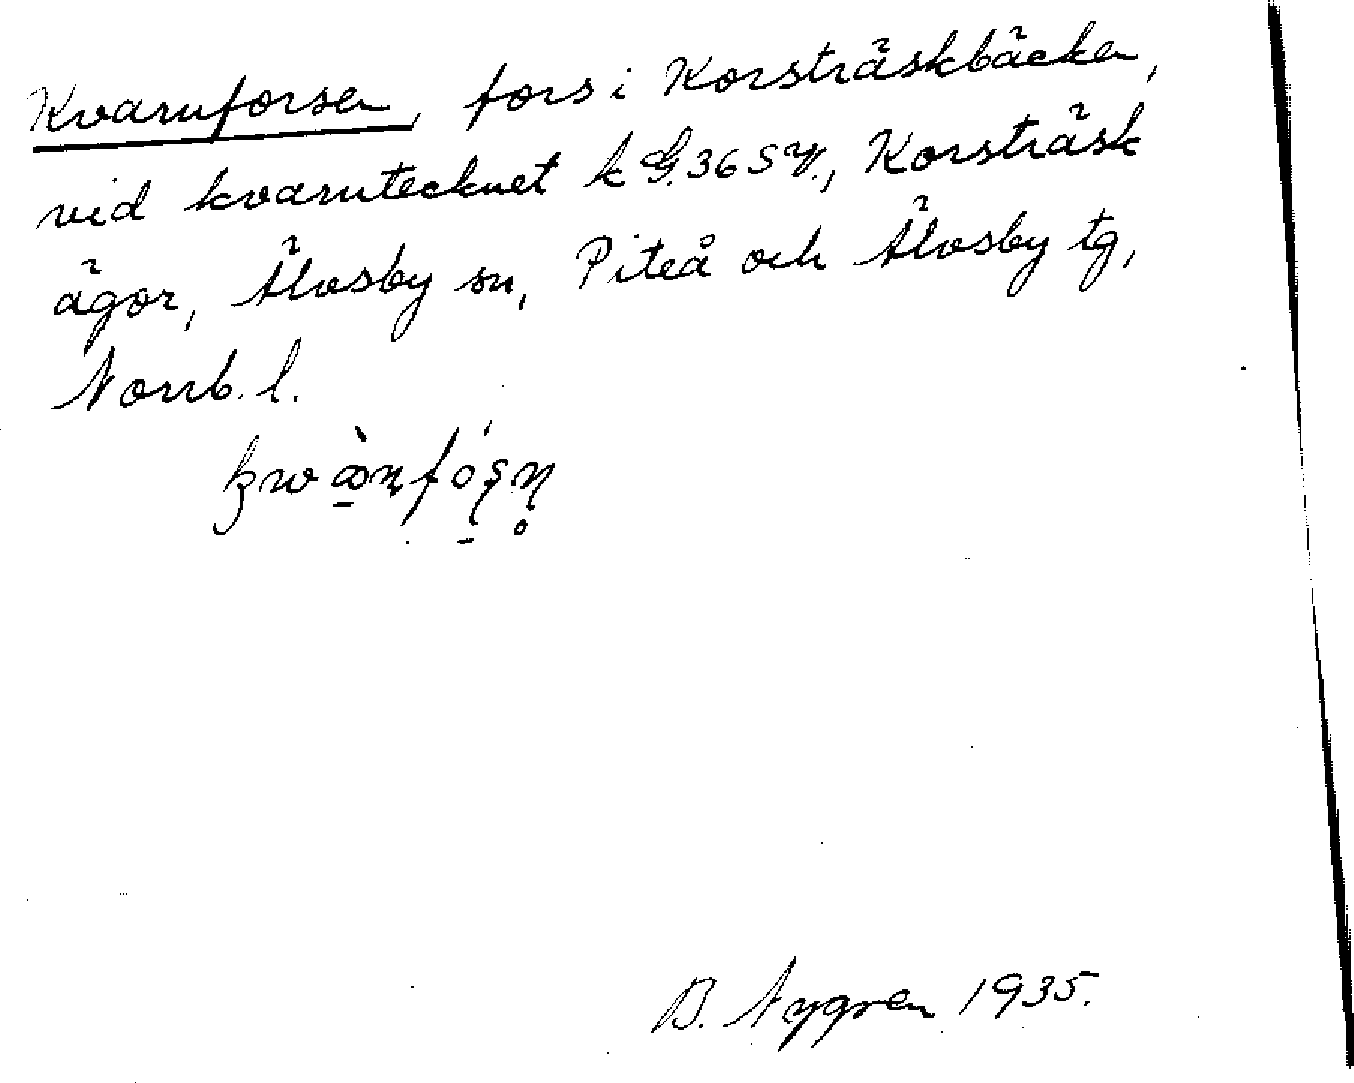 Kvarnforsen, fors i Korsträskbäcken,
vid kvarntecknet k G.36 SV., Korsträsk
ägor, Älvsby sn, Piteå och Älvsby tg,
Norrb. l.
B. Nygren 1935.